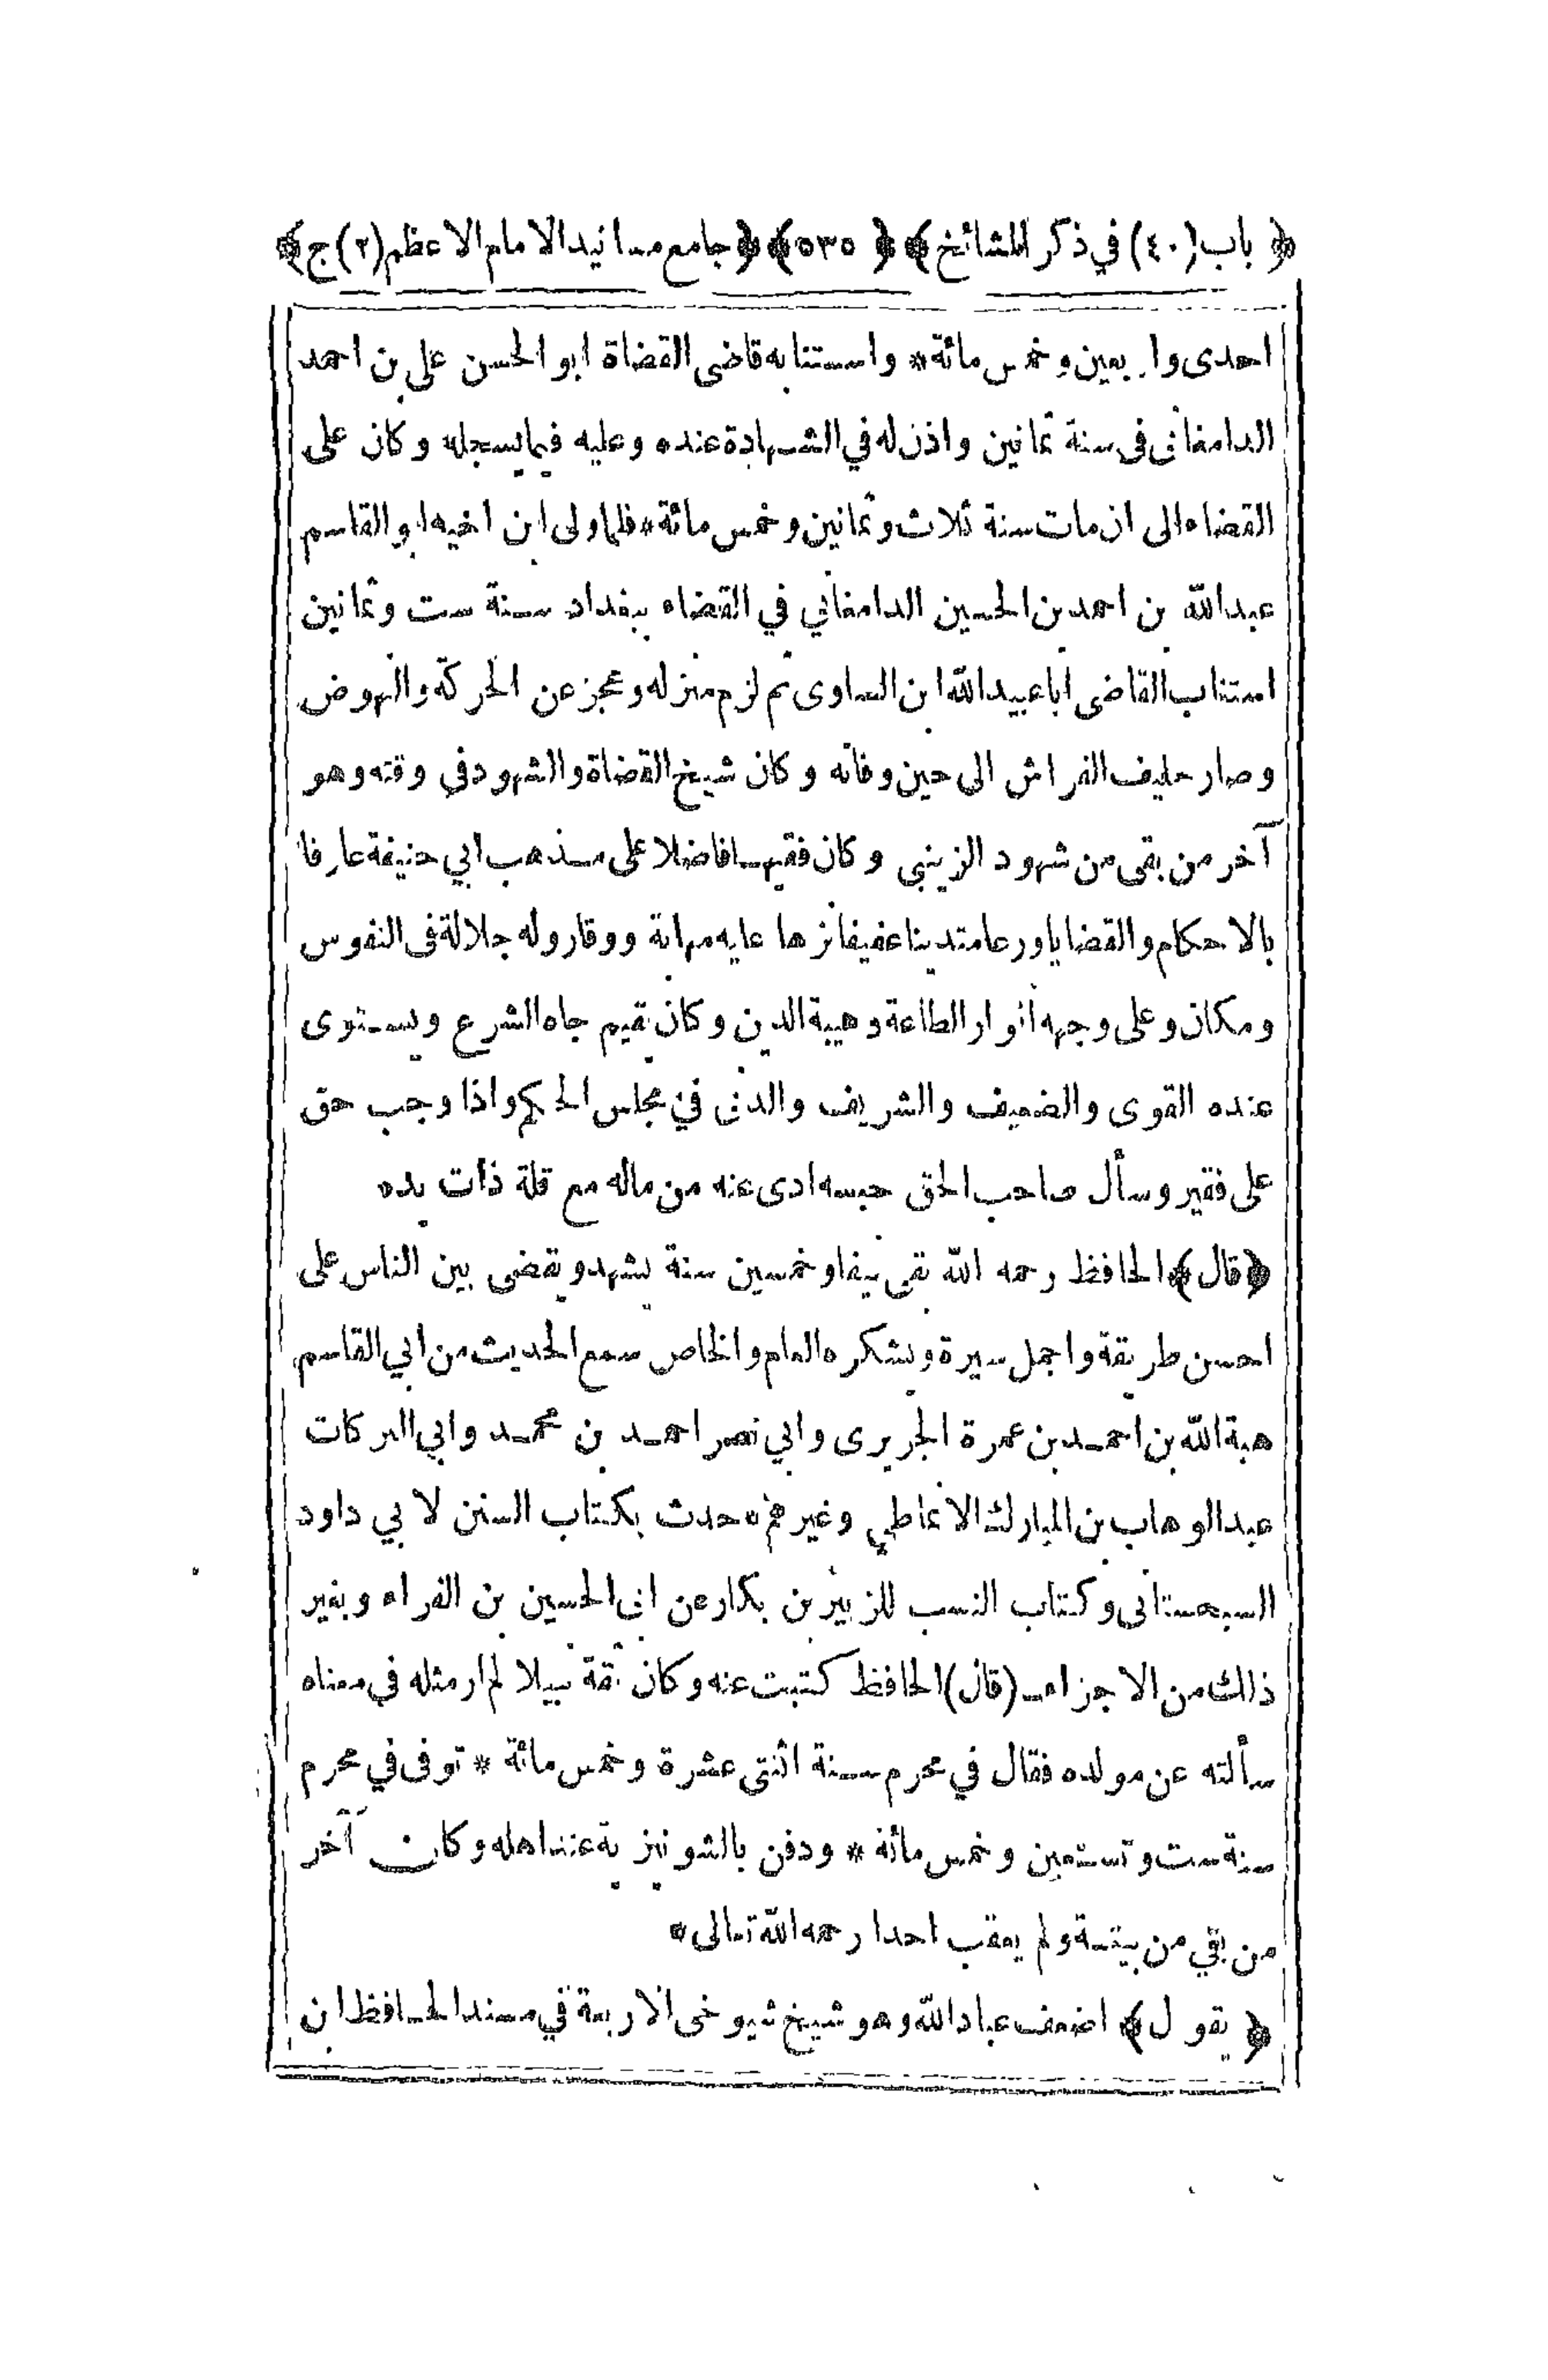 ﴿ باب (٤٠) في ذكر المشائخ ﴾ ﴿ ٥٣٥ ﴾ ﴿ جامع مسانيد الامام الاعظم (٢) ج ﴾
احدى واربعين وخمس مائة * واستنابه قاضى القضاة ابو الحسن على بن احمد
الدامغانى فى سنة ثمانين واذن له في الشهادة عنده وعليه فيما يسجله وكان على
القضاء الى ان مات سنة ثلاث وثمانين وخمس مائة * فلما ولى ابن اخيه ابو القاسم
عبدالله بن احمد بن الحسين الدامغاني في القضاء ببغداد سنة ست وثمانين
استناب القاضى ابا عبيدالله ابن الساوى ثم لزم منزله وعجز عن الحركة والنهوض
وصار حليف الفراش الى حين وفاته وكان شيخ القضاة والشهود في وقته وهو
آخر من بقى من شهود الزينبى وكان فقيها فاضلا على مذهب ابي حنيفة عارفا
بالاحكام والقضايا ورعا متدينا عفيفا نزها عليه مهابة ووقار وله جلالة فى النفوس
ومكان وعلى وجهه انوار الطاعة وهيبة الدين وكان يقيم جاه الشرع ويستوى
عنده القوى والضعيف والشريف والدنى في مجلس الحكم واذا وجب حق
على فقير وسأل صاحب الحق حبسه ادى عنه من ماله مع قلة ذات يده
﴿ قال ﴾ الحافظ رحمه الله بقى نيفا وخمسين سنة يشهد ويقضى بين الناس على
احسن طريقة واجمل سيرة ويشكره العام والخاص سمع الحديث من ابي القاسم
هبة الله بن احمد بن عمرة الجريرى وابي نصر احمد بن محمد وابي البركات
عبدالوهاب بن المبارك الانماطي وغيرهم * حدث بكتاب السنن لابي داود
السجستانى وكتاب النسب للزبير بن بكار عن ابى الحسين بن الفراء وبغير
ذلك من الاجزاء (قال) الحافظ كتبت عنه وكان ثقة نبيلا لم ار مثله في معناه
سألته عن مولده فقال في محرم سنة اثنتى عشرة وخمس مائة * توفى في محرم
سنة ست وتسعين وخمس مائة * ودفن بالشونيزية عند اهله وكان آخر
من بقي من بيته ولم يعقب احدا رحمه الله تعالى *
﴿ يقول ﴾ اضعف عباد الله وهو شيخ شيوخى الاربعة في مسند الحافظ ابن